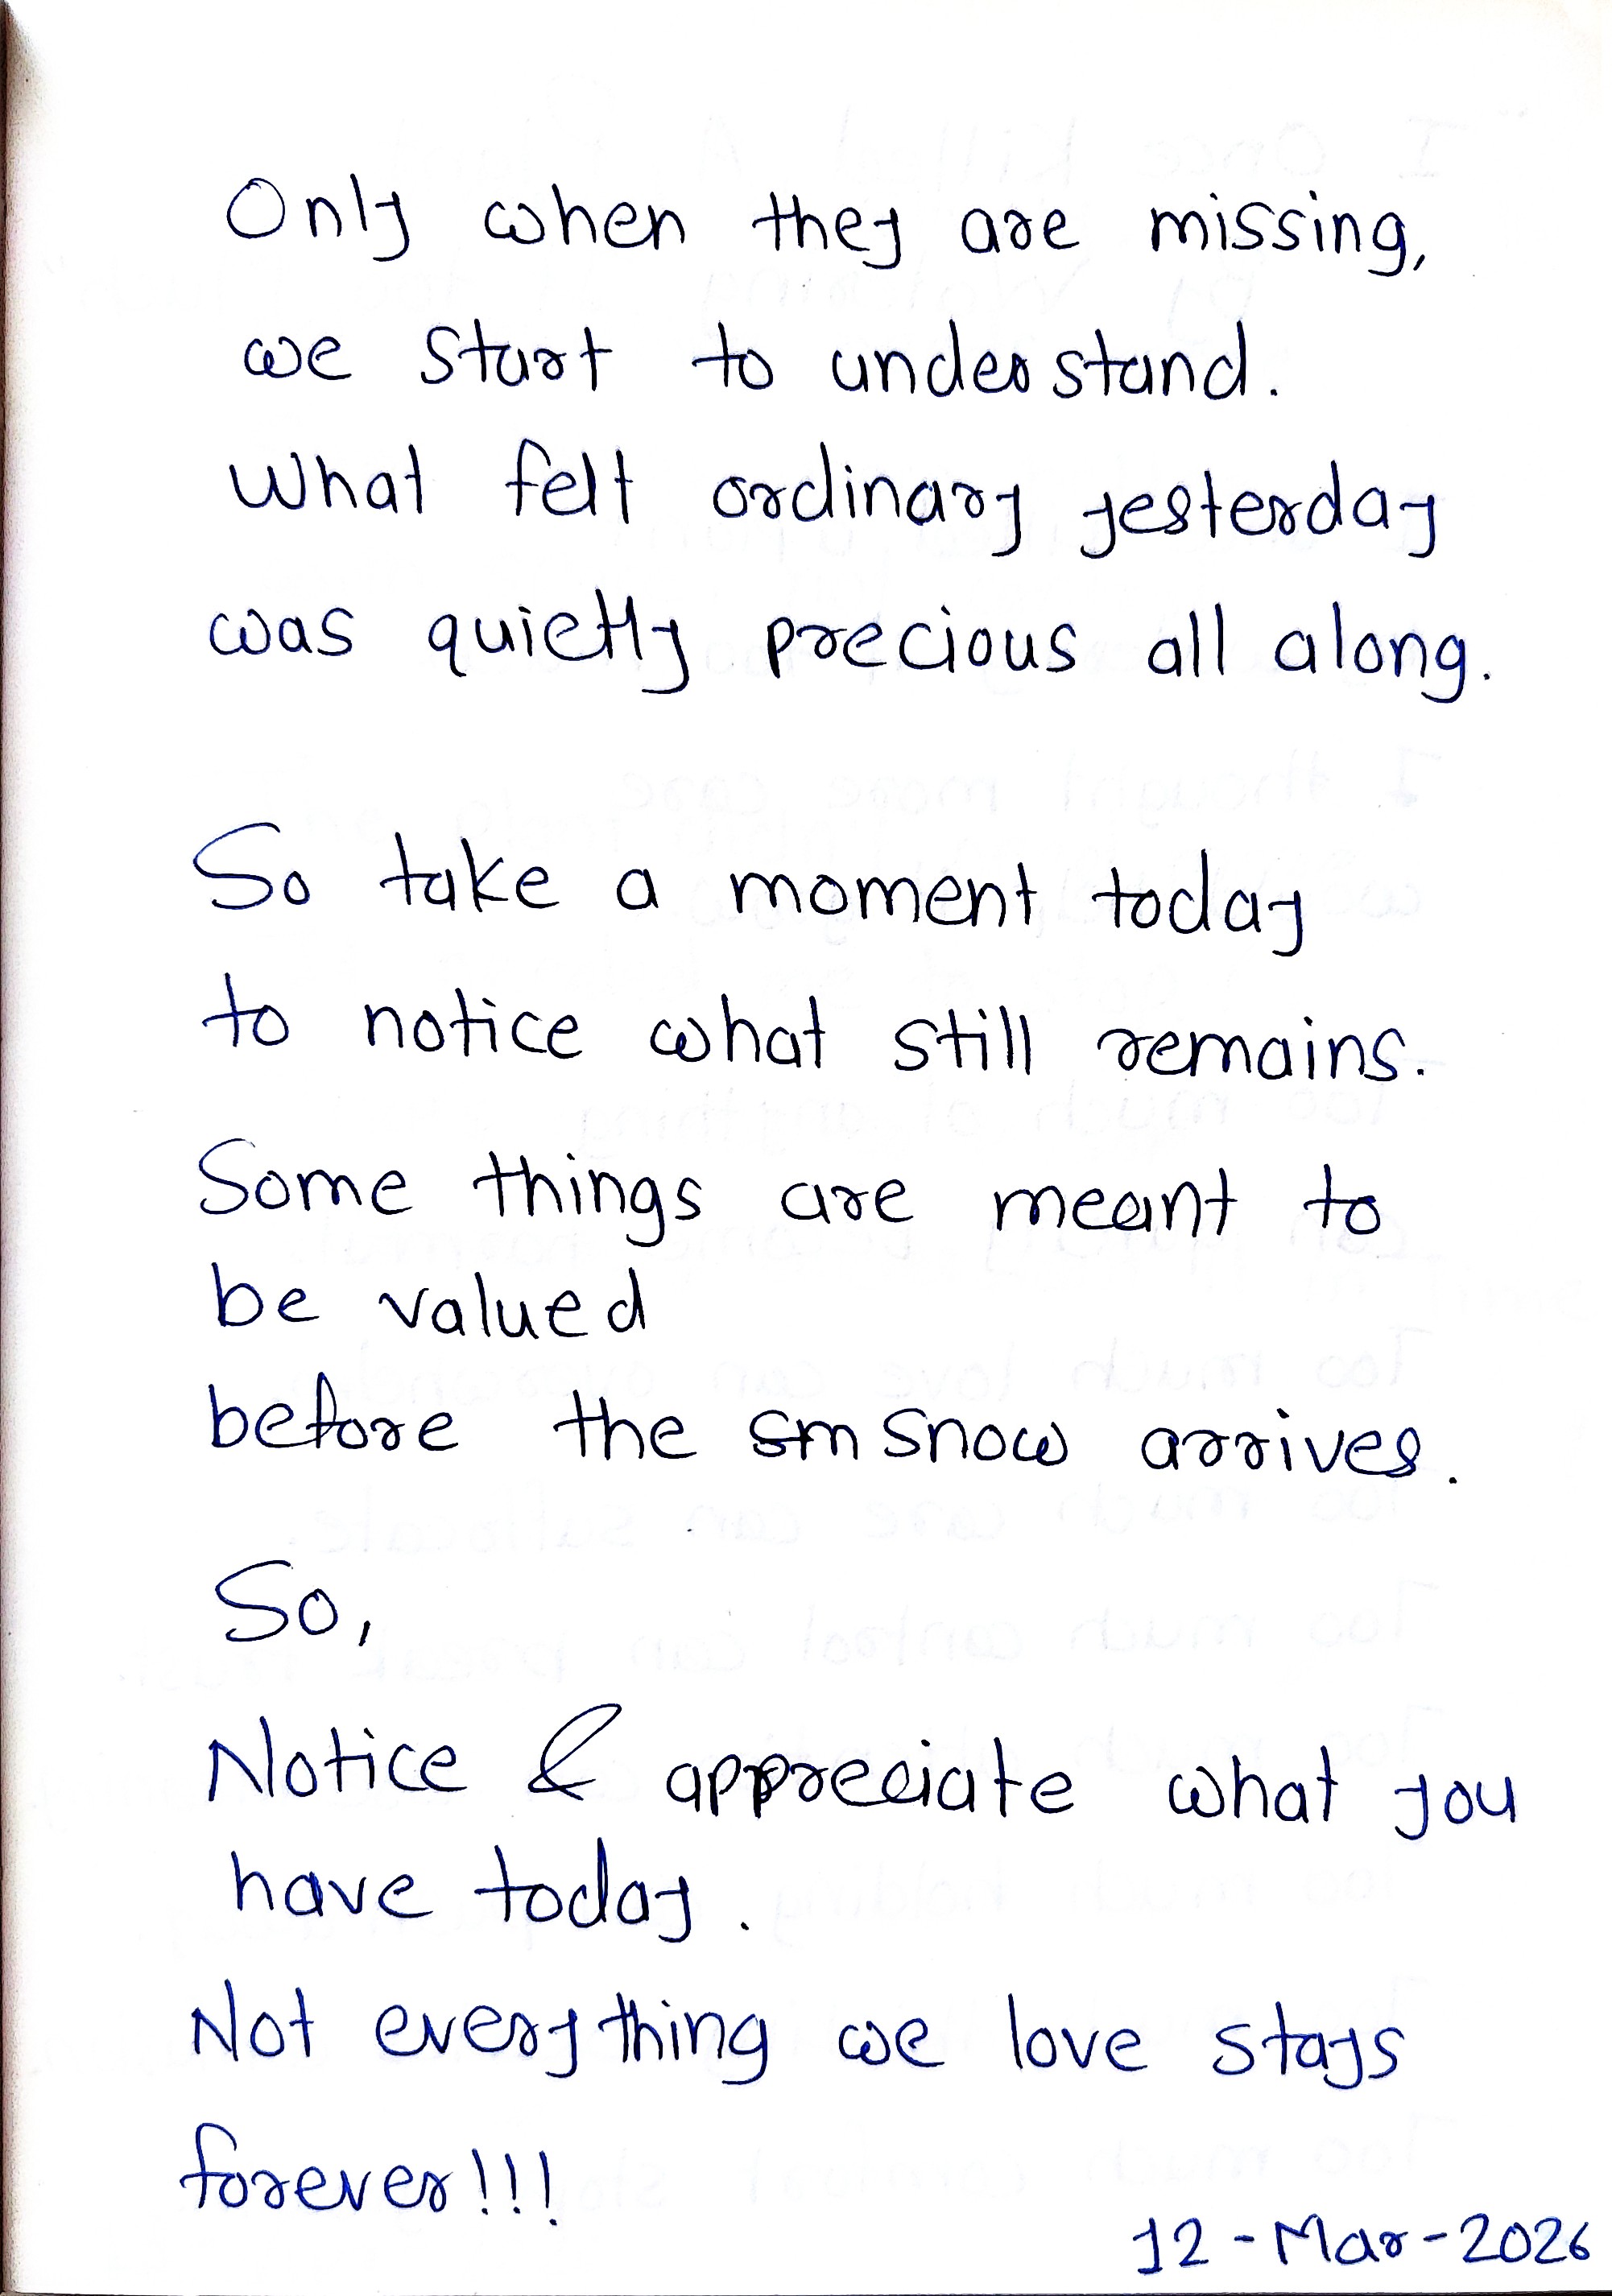 Only when they are missing,
we start to understand.
What felt ordinary yesterday
was quietly precious all along.
So take a moment today
to notice what still remains.
Some things are meant to
be valued
before the sm snow arrives.
So,
Notice & appreciate what you
have today.
Not everything we love stays
forever!!!
12-Mar-2026